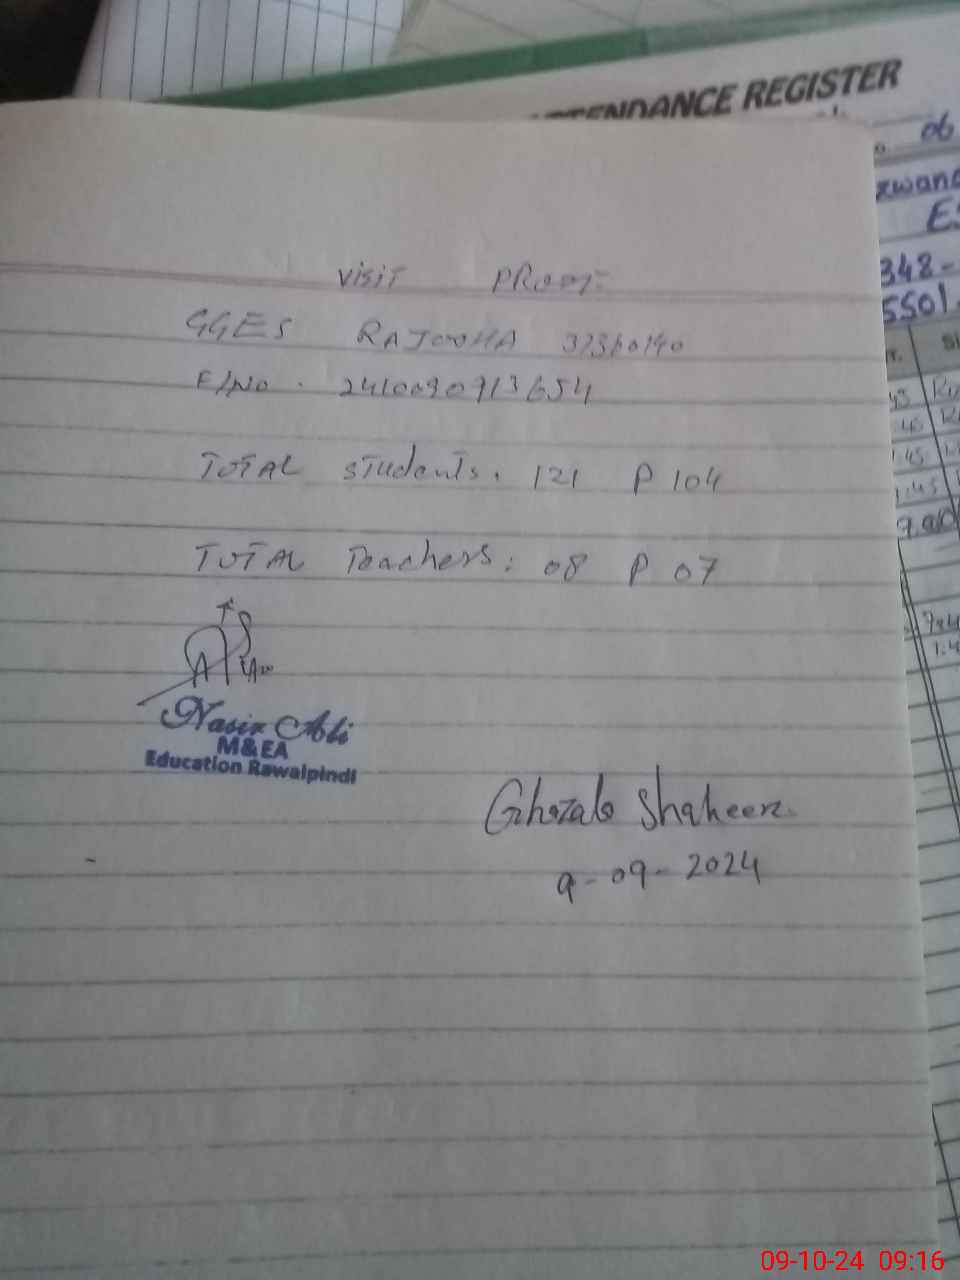 ATTENDANCE REGISTER
06
348-
5501
VISIT PROOF
GGES RAJOOHA 37360140
F/No. 2410090913654
TOTAL Students. 121 P 104
TOTAL Teachers: 08 P 07
Nasir Ali
M&EA
Education Rawalpindi
Ghazala Shaheen
9-09-2024
09-10-24 09:16